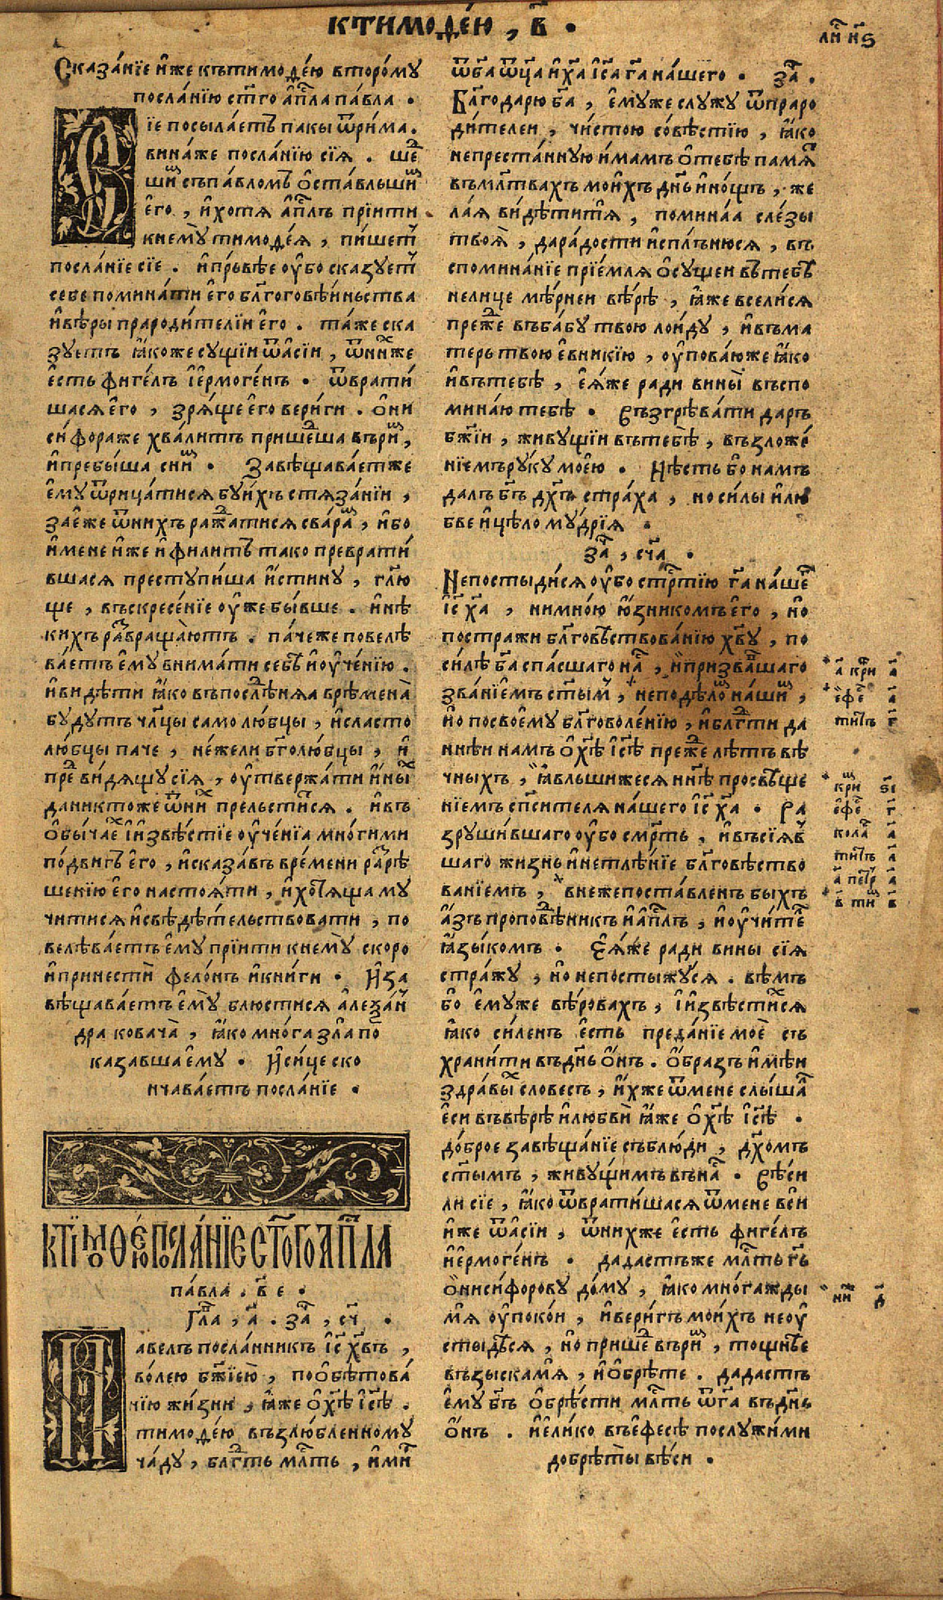 ктимоѳе́ю , в҃ •
ли҃ н҃ѕ
Сказа́нїе и҆́же къ тимоѳе́ю второ́му
посла́нїю ст҃го а҆п҃ла па́вла •
Вїе посыла́етъ пакы ѿри́ма .
вина́же посла́нїю сїѧ̀ . ше
ши съпа́вломъ ѡ҆ста́вльши
его̀ , и҆хотѧ̀ а҆п҃лъ прїити
кнемꙋ̀ тимоѳе́ѧ , пи́шетъ
посла́нїе сїе . и҆пръвѣе ᲂу҆́бо сказꙋетъ
себе помина́ти є҆го̀ бл҃гоговѣ́иньства
и҆вѣ́ры прароди́телїи є҆го̀ . та́же ска
зꙋетъ ꙗ҆́коже сꙋ́щїи ѿа҆сїи , ѿни́хже
є҆́сть фиге́лъ і҆є҆рмоге́нъ • ѿврати́
шасѧ є҆го̀ , зрѧ́ще є҆го вери́ги . ѻ҆ни
си́фораже хва́литъ прише́ша въри́м ,
и҆пребы́ша сни́м • Завѣщава́етже
є҆мꙋ̀ ѿрица́тисѧ бꙋ́ихъ стѧза́нїи ,
занѐже ѿни́хъ ража́тисѧ сва́рам , и҆бо
и҆мене́и и҆́же и҆фили́тъ тако преврати́
вшасѧ престꙋпи́ша и҆́стинꙋ , гл҃ю
ще , въскресе́нїе ᲂу҆же бы́вше . и҆нѣ
кихъ развраща́ютъ . па́чеже повелѣ
ва́етъ є҆мꙋ̀ внима́ти себѣ̀ и҆ᲂу҆че́нїю .
и҆ви́дѣти ꙗ҆́ко въпослѣ́днѧѧ времена̀
бꙋ́дꙋтъ чл҃цы само лю́бцы , и҆сласто
лю́бцы паче , не́жели б҃голю́бцы , и҆
пре́двидѧщꙋ сїѧ̀ , ᲂу҆твержа́ти и҆ны́х
даникто́же ѿни́х прельсти́тсѧ . и҆въ
ѻ҆бы́чае і҆и҆звѣ́стїе ᲂу҆че́нїа мно́гими
по́двигъ є҆го̀ , и҆сказа́въ вре́мени разрѣ
ше́нїю є҆го настоѧ́ти , и҆хотѧ́ща мꙋ
читисѧ и҆свѣдѣ́тельствовати , по
велѣва́етъ є҆мꙋ̀ прїити кнемꙋ̀ ско́ро
и҆принести фело́нь и҆кни́ги • И҆за
вѣщава́етъ є҆мꙋ̀ блюсти́сѧ а҆леѯа́н
дра кова́ча , ꙗ҆́ко мно́га зла́ по
каза́вша є҆мꙋ̀ • И҆си́це ско
нчава́етъ посла́нїе •
ктїмоѳе́ю посла́нїе ст҃го а҆п҃ла
па́вла . в҃ е •
Гл҃а , а҃ . за҃ , с҃ч •
Па́велъ посла́нникъ і҆с҃ х҃въ ,
во́лею бж҃їею , пооб̾ѣтова́
нїю жи́зни , ꙗ҆́же ѻ҆х҃ѣ і҆с҃ѣ .
тимоѳе́ю възлю́бленномꙋ
ча́дꙋ , бл҃гть мл҃ть , и҆ми́р
ѿб҃а ѿц҃а и҆х҃а і҆с҃а г҃а на́шего • за҃ .
Бл҃годарю̀ б҃а , є҆мꙋ́же слꙋжꙋ̀ ѿпраро
ди́телеи , чи́стою со́вѣстїю , ꙗ҆́ко
непреста́ннꙋю и҆́мамъ ѻ҆тебѣ̀ памѧ
въмл҃твахъ мои́хъ дн҃ь и҆но́щь , же
ла́ѧ ви́дѣтитѧ , помина́а сле́зы
твоѧ̀ , дара́дости и҆спл́ънюсѧ , въ
спомина́нїе прїе́млѧ ѻ҆сꙋ́щеи въ тебѣ̀
нелице мѣ́рнеи вѣ́рѣ , ꙗ҆́же всели́сѧ
пре́же въба́бꙋ твою̀ лои́дꙋ , и҆въма́
терь твою̀ є҆вники́ю , ᲂу҆пова́юже ꙗ҆́ко
и҆въ тебѣ , є҆ѧ́же ради вины̀ въспо
мина́ю тебѣ . Съзгрѣва́ти даръ
бж҃їи , живꙋ́щїи въ тебѣ , възложе́
нїемъ рꙋкꙋ̀ моє́ю . Нѣ́сть бо намъ
да́лъ б҃гъ дх҃ъ стра́ха , но си́лы и҆лю
бве и҆цѣло мꙋ́дрїѧ •
за҃ , сч҃а •
Непостыди́сѧ ᲂу҆бо стр҃тїю г҃а на́шего
і҆с҃ х҃а , нимно́ю ю҆́зникомъ є҆го̀ , но
постражи бл҃говѣствова́нїю х҃вꙋ , по
си́лѣ б҃а спа́сшаго на́с , и҆призва́вшаго
зва́нїемъ ст҃ым , неподѣ́лом на́шим ,
но посвоемꙋ бл҃говоле́нїю , и҆бл҃гти да
ннѣи намъ ѻ҆х҃ѣ і҆с҃ѣ пре́же лѣтъ вѣ
чныхъ , ꙗ҆́вльшижесѧ нн҃ѣ просвѣще
нїемъ сп҃си́телѧ на́шего і҆с҃ х҃а • Ра
зрꙋши́вшаго ᲂу҆бо смр҃ть , и҆въсїѧ́в
шаго жи́знь и҆нетлѣ́нїе бл҃говѣство
ванїемъ , внеже поста́вленъ быхъ
а҆́зъ проповѣ́дникъ и҆а҆п҃лъ , и҆ᲂу҆чи́тель
ꙗ҆зы́комъ . Є҆ѧ́же ради вины сїѧ̀
стра́жꙋ , но непостыжꙋ́сѧ . вѣмъ
бо є҆мꙋ́же вѣ́ровахъ , і҆и҆звѣсти́хсѧ
ꙗ҆́ко си́ленъ є҆́сть преда́нїе моѐ съ
храни́ти въдн҃ь ѻ҆́нъ . ѻ҆́бразъ и҆мѣ́и
здра́вых словесъ , и҆́хже ѿмене слы́шалъ
є҆си въвѣ́рѣ и҆любвѝ ꙗ҆́же ѻ҆х҃ѣ і҆с҃ѣ •
до́брое завѣща́нїе съблюди , дх҃омъ
ст҃ымъ , живꙋ́щимъ въна́с . Вѣ́си
ли сїе , ꙗ҆́ко ѿврати́шасѧ ѿмене вси
и҆́же ѿа҆сїи , ѿни́хже є҆́сть фиге́лъ
и҆є҆рмоге́нъ • дада́стьже мл҃ть г҃ь
ѻ҆ниси́форовꙋ до́мꙋ , ꙗ҆́ко мно́гажды
мѧ̀ ᲂу҆поко́и , и҆вери́гъ мои́хъ неᲂу
стыдѣ́сѧ , но прише́д въри́м , то́щнѣе
възыска́мѧ , и҆ѻ҆брѣ́те . дада́сть
є҆мꙋ̀ б҃гъ ѻ҆брѣсти мл҃ть ѿг҃а въдн҃ь
ѻ҆́нъ . и҆ели́ко въефе́сѣ послꙋжи́ми
до́брѣ ты вѣ́си •
а҃ кри а҃
ефе а҃
тит в҃
кри є҃і
ефе г҃
кола а҃
тит а҃
а҃ петр а҃
в҃ тим в҃
ни́ж д҃